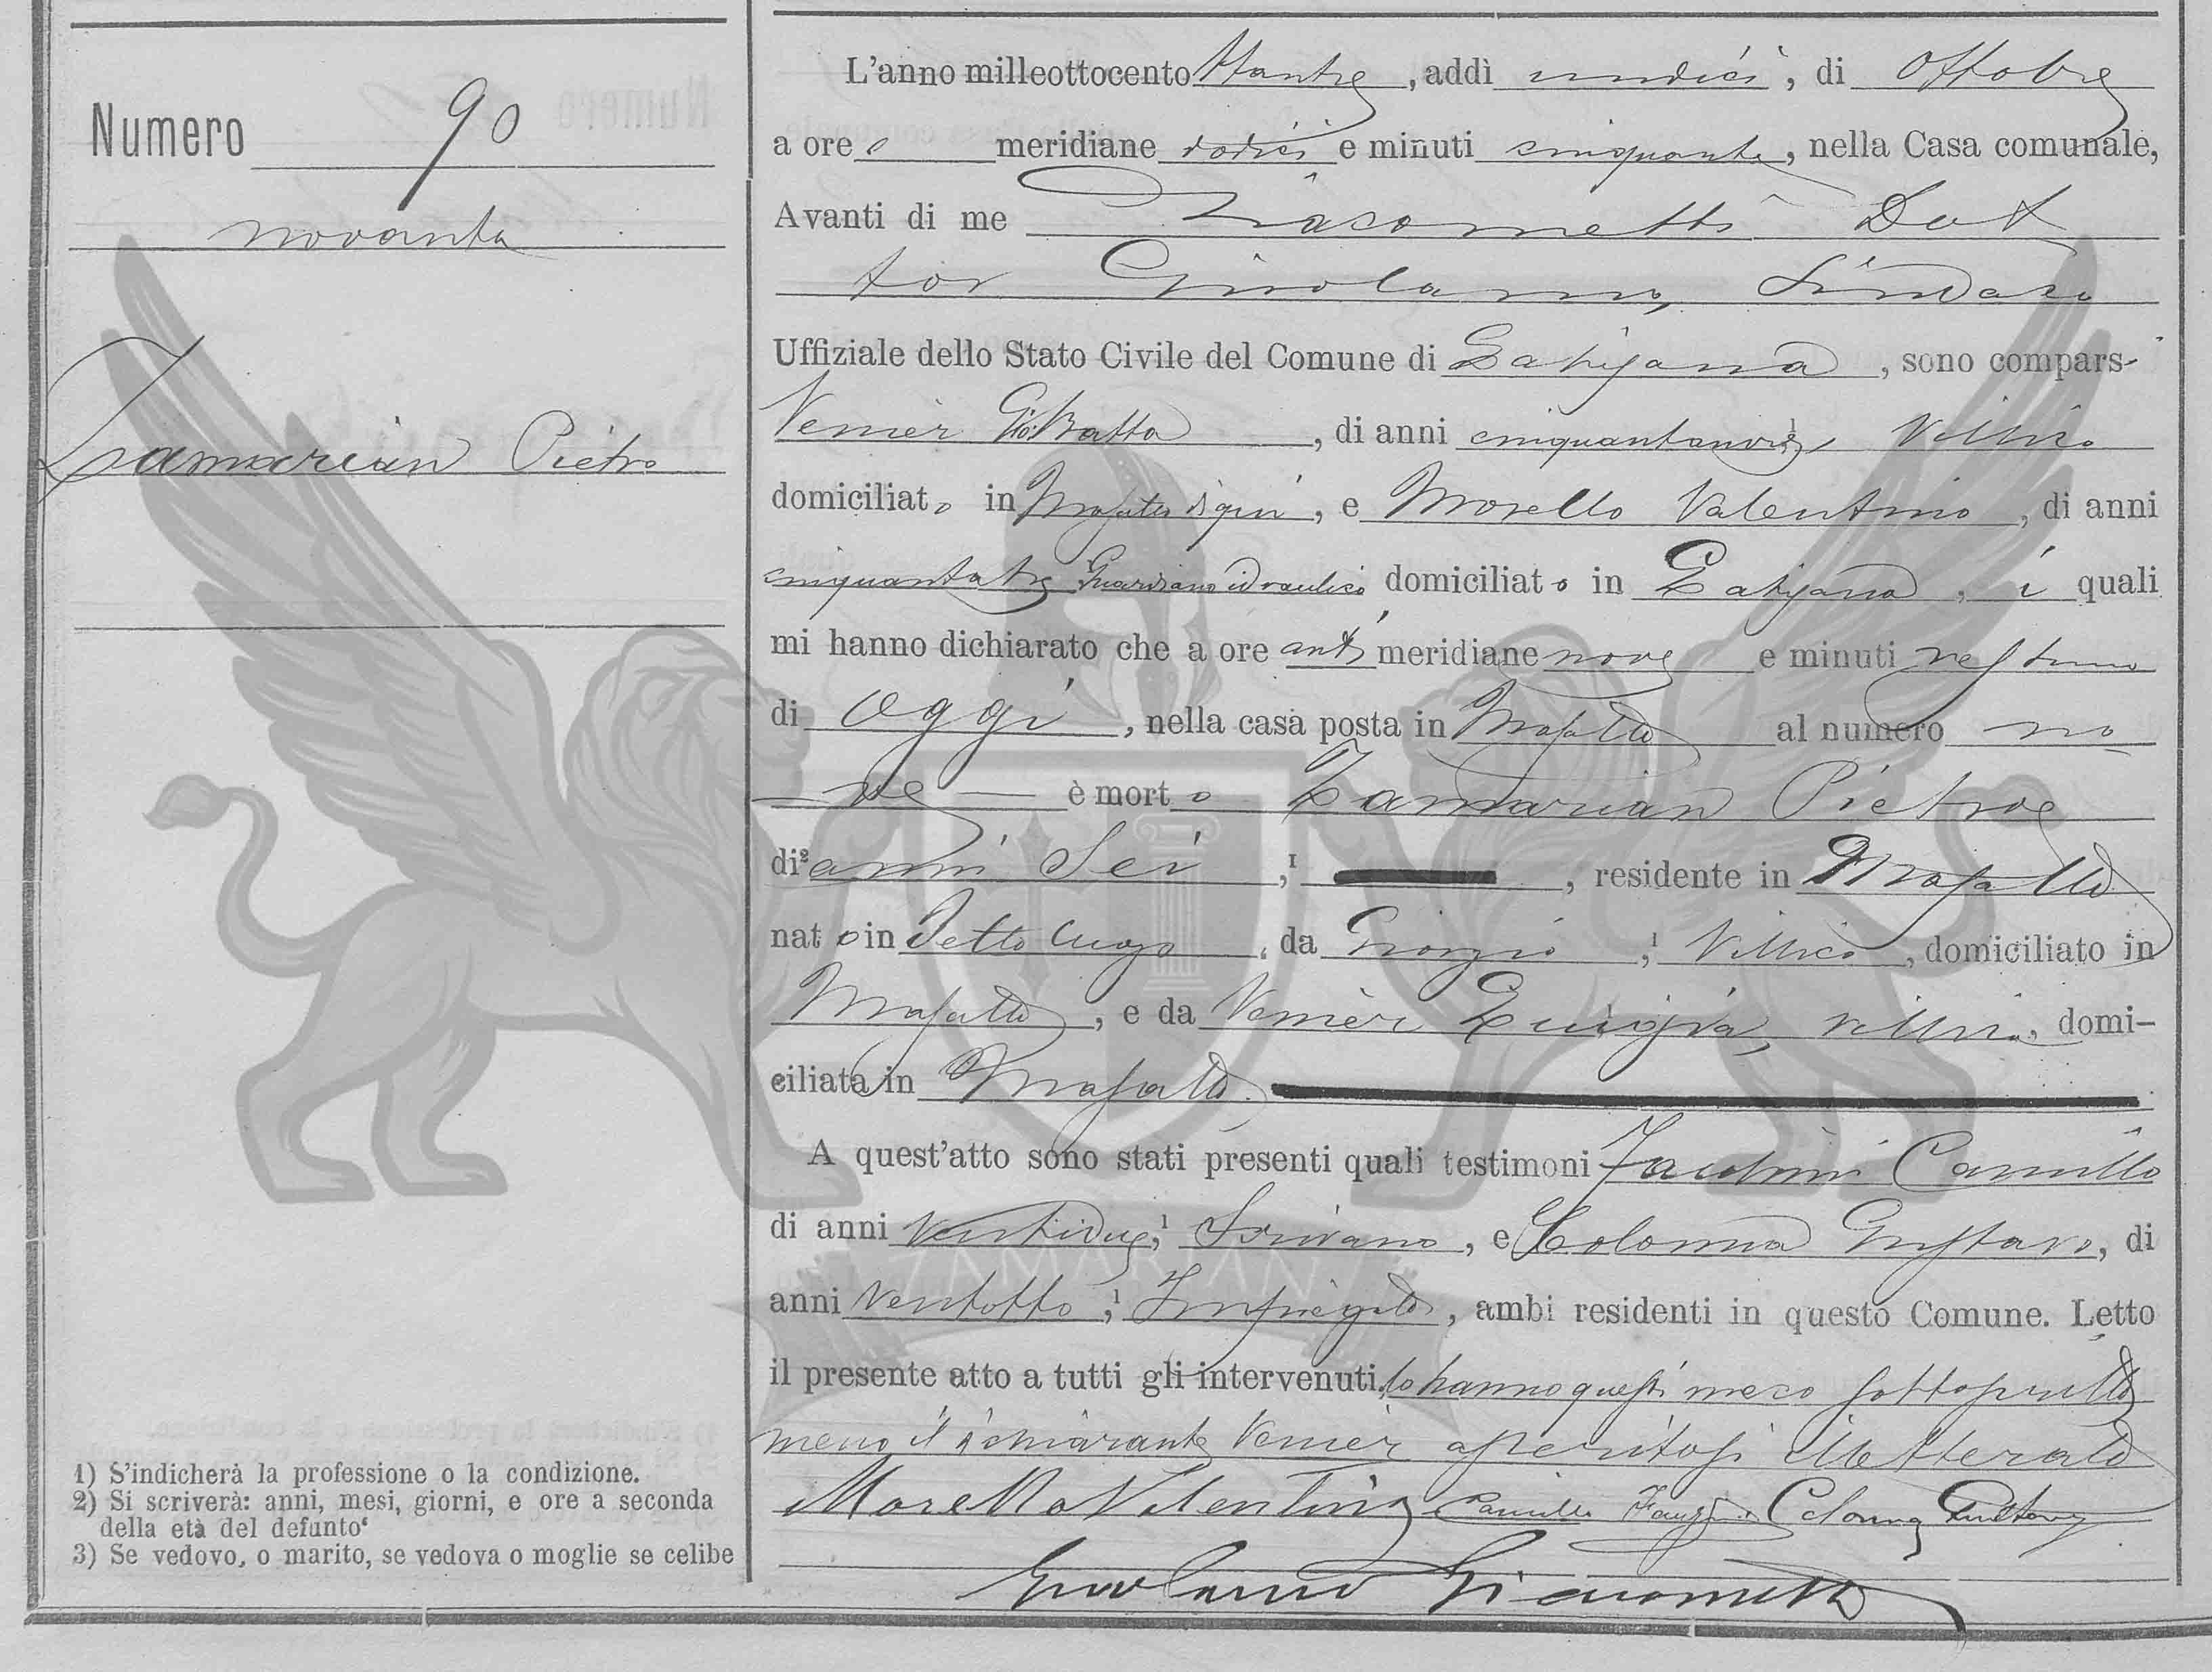 Numero 90
novanta
Zamarian Pietro
1) S'indicherà la professione o la condizione.
2) Si scriverà: anni, mesi, giorni, e ore a seconda
della età del defunto
3) Se vedovo, o marito, se vedova o moglie se celibe
L'anno milleottocento ottantre, addì undici, di Ottobre
a ore meridiane dodici e minuti cinquanta, nella Casa comunale,
Avanti di me Giacometti Dot
tor Girolamo, Sindaco
Uffiziale dello Stato Civile del Comune di Latisana, sono compars
Venier Gio: Batta, di anni cinquantanove, Villico
domiciliato in di qui, e Morello Valentino, di anni
cinquantatre Guardiano idraulico domiciliato in Latisana, i quali
mi hanno dichiarato che a ore anti meridiane nove e minuti nessuno
di oggi, nella casa posta in al numero no
ve è morto Zamarian Pietro
di² anni Sei,¹ , residente in
nato in detto luogo, da Giorgio,¹ Villico, domiciliato in
, e da Venier Luigia, villica, domi-
ciliata in
A quest'atto sono stati presenti quali testimoni Camillo
di anni Ventidue,¹ Scrivano, e Colonna Gustavo, di
anni Ventotto,¹ Impiegato, ambi residenti in questo Comune. Letto
il presente atto a tutti gli intervenuti, lo hanno questi meco sottoscritto
meno il dichiarante Venier illetterato
Morello Valentino Camillo Colonna Gustavo
Girolamo Giacometti
ZAMARIAN